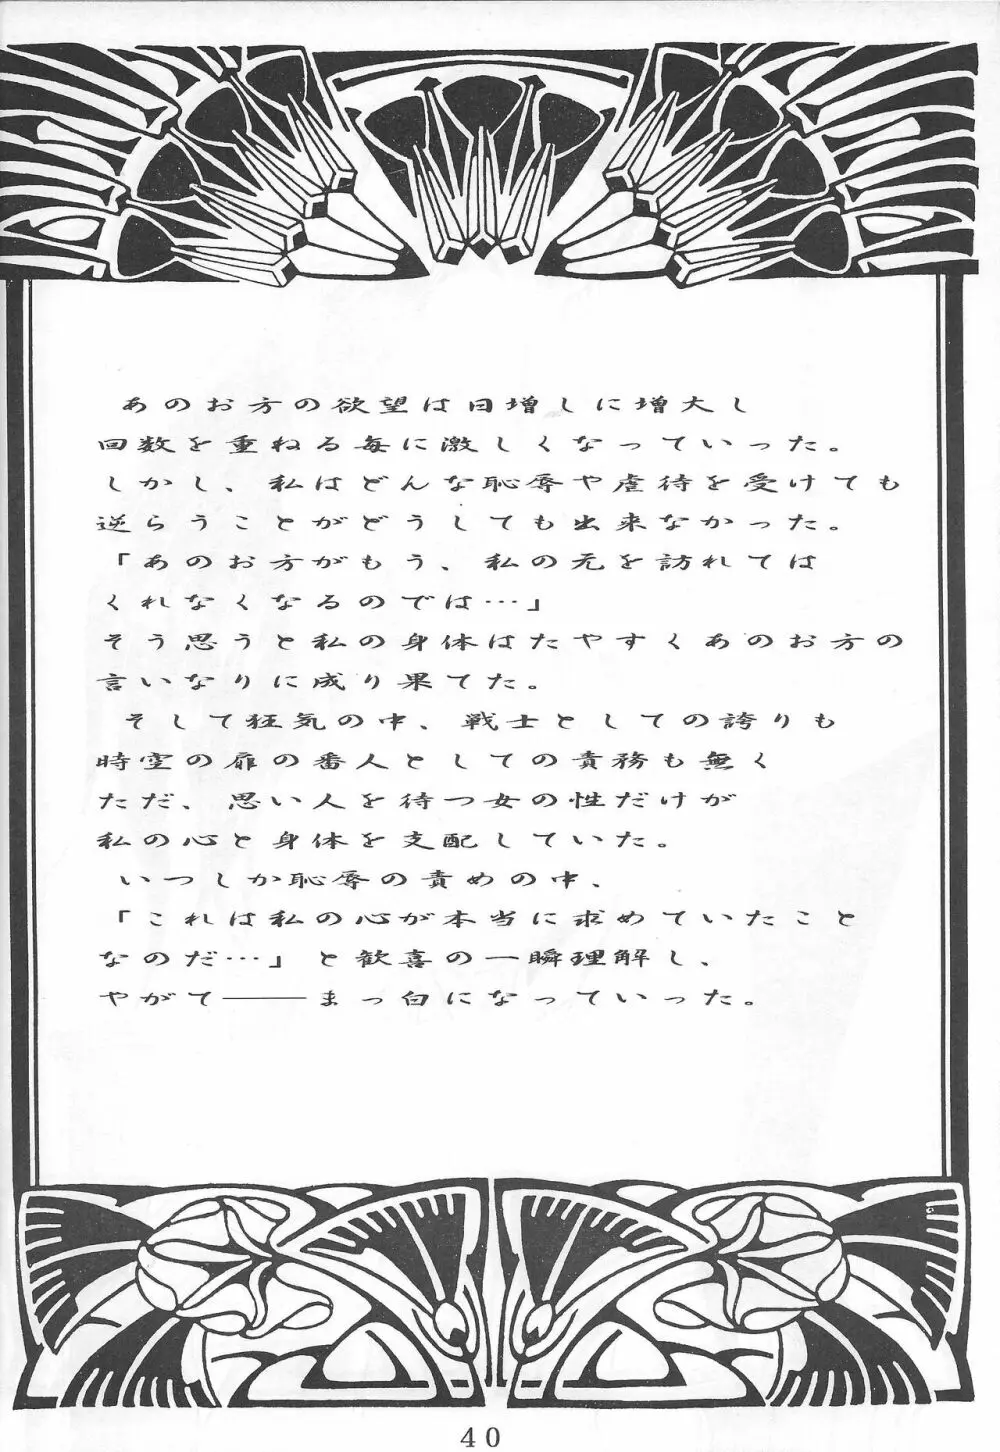 あのお方の欲望は日増しに増大し
回数を重ねる毎に激しくなっていった。
しかし、私はどんな恥辱や虐待を受けても
逆らうことがどうしても出来なかった。
「あのお方がもう、私の元を訪れては
くれなくなるのでは…」
そう思うと私の身体はたやすくあのお方の
言いなりに成り果てた。
そして狂気の中、戦士としての誇りも
時空の扉の番人としての責務も無く
ただ、思い人を待つ女の性だけが
私の心と身体を支配していた。
いつしか恥辱の責めの中、
「これは私の心が本当に求めていたこと
なのだ…」と歓喜の一瞬理解し、
やがて──まっ白になっていった。
40